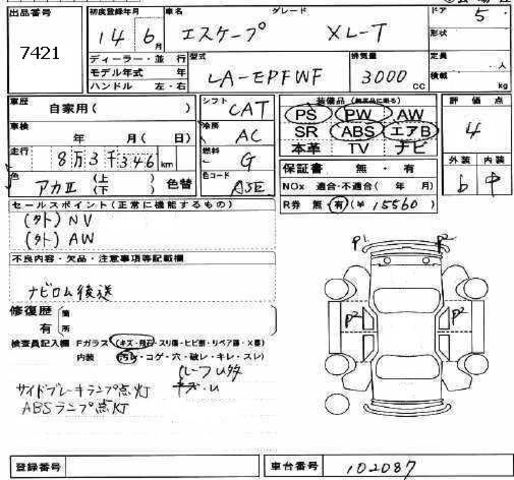 出品番号 7421
初度登録年月 14年 6月
車名 エスケープ
グレード XL-T
ドア 5
形状
ディーラー・並行
モデル年式 年
ハンドル 左・右
型式 LA-EPFWF
排気量 3000 cc
定員 人
積載 kg
車歴 自家用( )
シフト CAT
装備品
PS PW AW
SR ABS エアB
本革 TV ナビ
評価点 4
車検 年 月( 日)
冷房 AC
走行 8万3千346km
燃料 G
色 アカII (上) (下) 色替
色コード A3E
保証書 無・有
NOx 適合・不適合( 年 月)
R券 無 有(¥ 15560)
外装 b
内装 中
セールスポイント(正常に機能するもの)
(外)NV
(外)AW
不良内容・欠品・注意事項等記載欄
ナビロム後送
修復歴 有 箇所
検査員記入欄 Fガラス (キズ・飛石・スリ傷・ヒビ割・リペア跡・X割)
内装 (汚れ・コゲ・穴・破レ・キレ・スレ)
サイドブレーキランプ点灯
ABSランプ点灯
P1 P2
P2 P2
登録番号
車台番号 102087